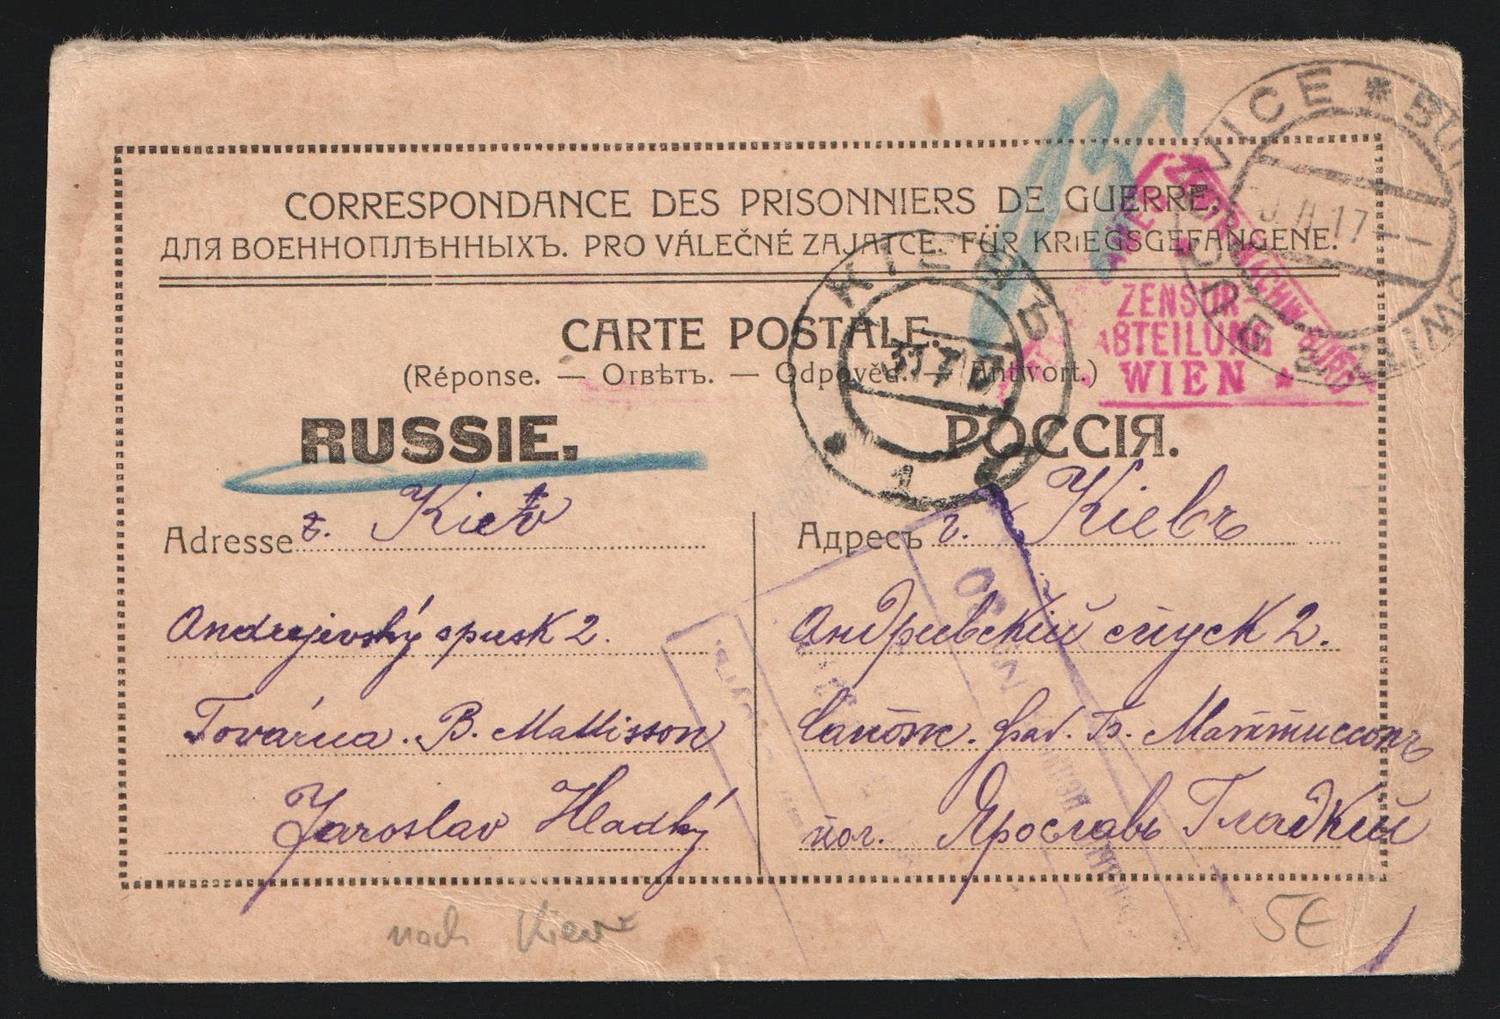 CORRESPONDANCE DES PRISONNIERS DE GUERRE.
ДЛЯ ВОЕННОПЛѢННЫХЪ. PRO VÁLEČNÉ ZAJATCE. FÜR KRIEGSGEFANGENE.
CARTE POSTALE.
(Réponse. — Отвѣтъ. — Odpověď. — Antwort.)
RUSSIE.
РОССІЯ.
Adresse г. Kiev
Andrejevský spusk 2.
Továrna. B. Mattisson
Jaroslav Hladký
Адресъ г. Кіевъ
Андреевскій спуск 2.
фаб. Б. Маттиссонъ
Ярославъ Гладкій
ZENSUR
ABTEILUNG
WIEN
КІЕВЪ
1
17
nach Kiew
5€